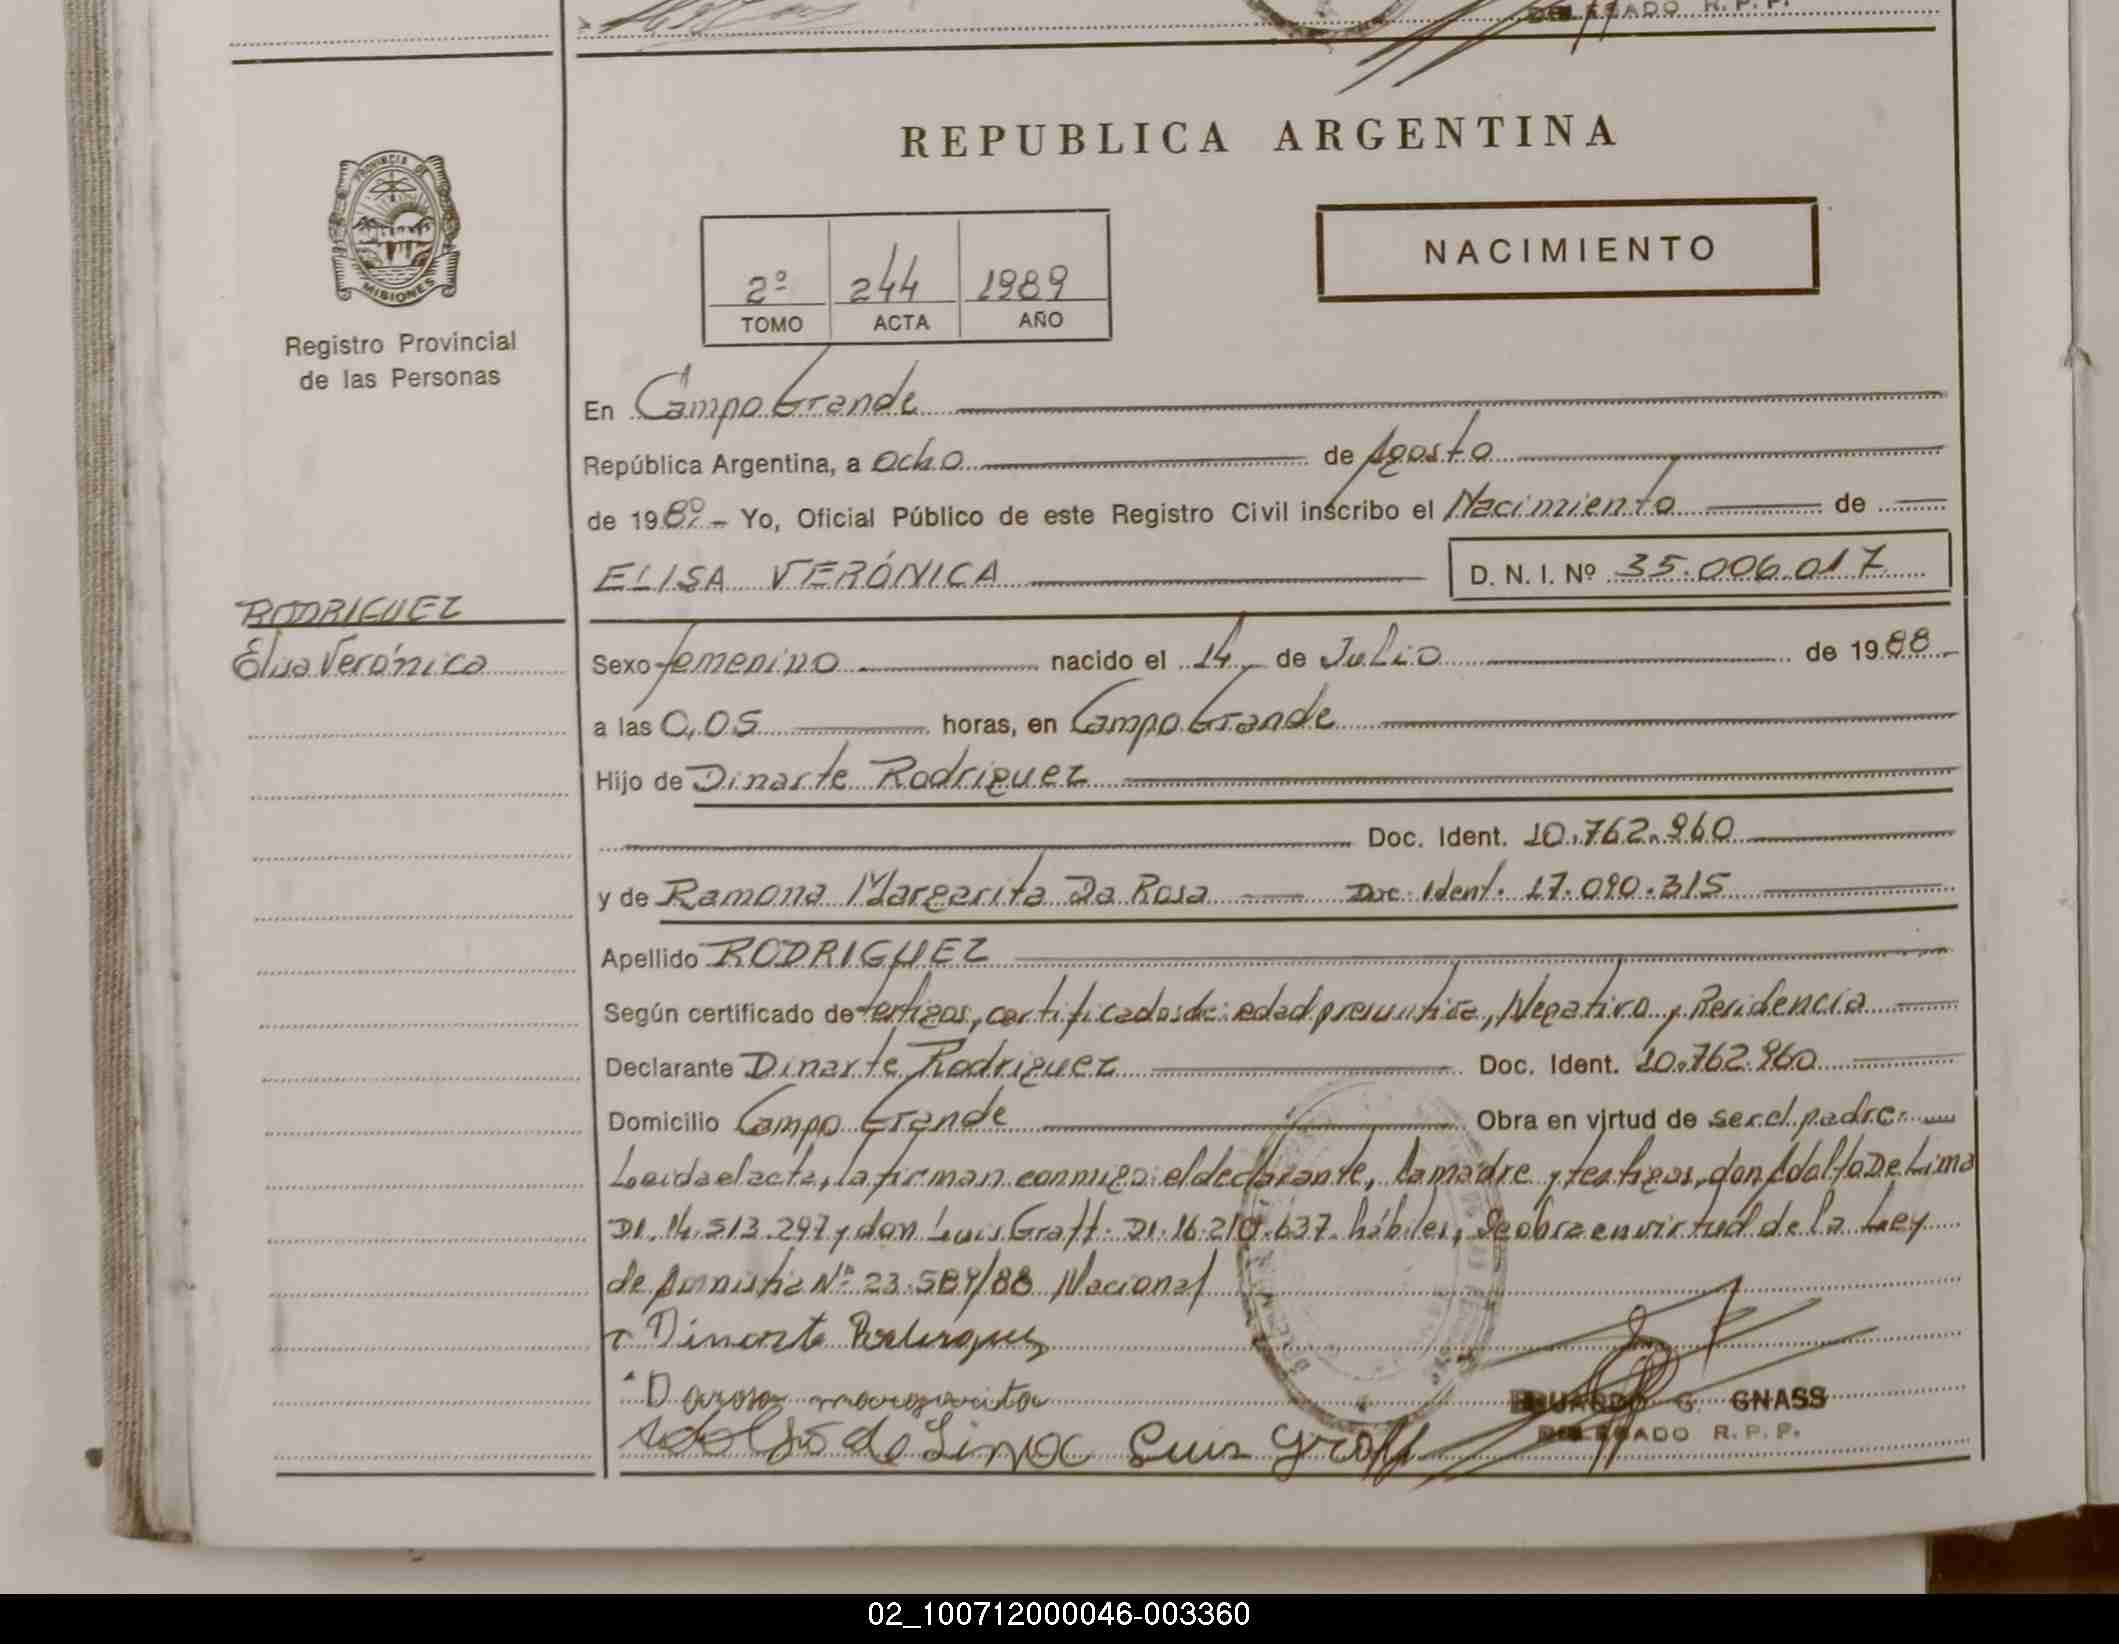 DELEGADO R. P. P.
REPUBLICA ARGENTINA
PROVINCIA DE
MISIONES
Registro Provincial
de las Personas
NACIMIENTO
2º 244 1989
TOMO ACTA AÑO
En Campo Grande
República Argentina, a ocho de Agosto
de 1989.- Yo, Oficial Público de este Registro Civil inscribo el Nacimiento de
ELISA VERÓNICA D. N. I. Nº 35.006.017
RODRIGUEZ
Elisa Verónica
Sexo femenino nacido el 14 de Julio de 1988
a las 0,05 horas, en Campo Grande
Hijo de Dinarte Rodriguez
Doc. Ident. 10.762.960
y de Ramona Margarita Da Rosa Doc. Ident. 17.090.315
Apellido RODRIGUEZ
Según certificado de testigos, certificados de: edad presuntiva, Negativo y Residencia
Declarante Dinarte Rodriguez Doc. Ident. 10.762.960
Domicilio Campo Grande Obra en virtud de ser el padre.
Leida el acta, la firman conmigo: el declarante, la madre y testigos, don Adolfo De Lima
DI. 14.513.297 y don Luis Graff. DI. 16.210.637. hábiles, Se obra en virtud de la Ley
de Amnistia Nº 23.584/88 Nacional
Dinarte Rodriguez
Darosa margarita
Adolfo de Lima Luis Graff
EDUARDO G. GNASS
DELEGADO R. P. P.
02_100712000046-003360